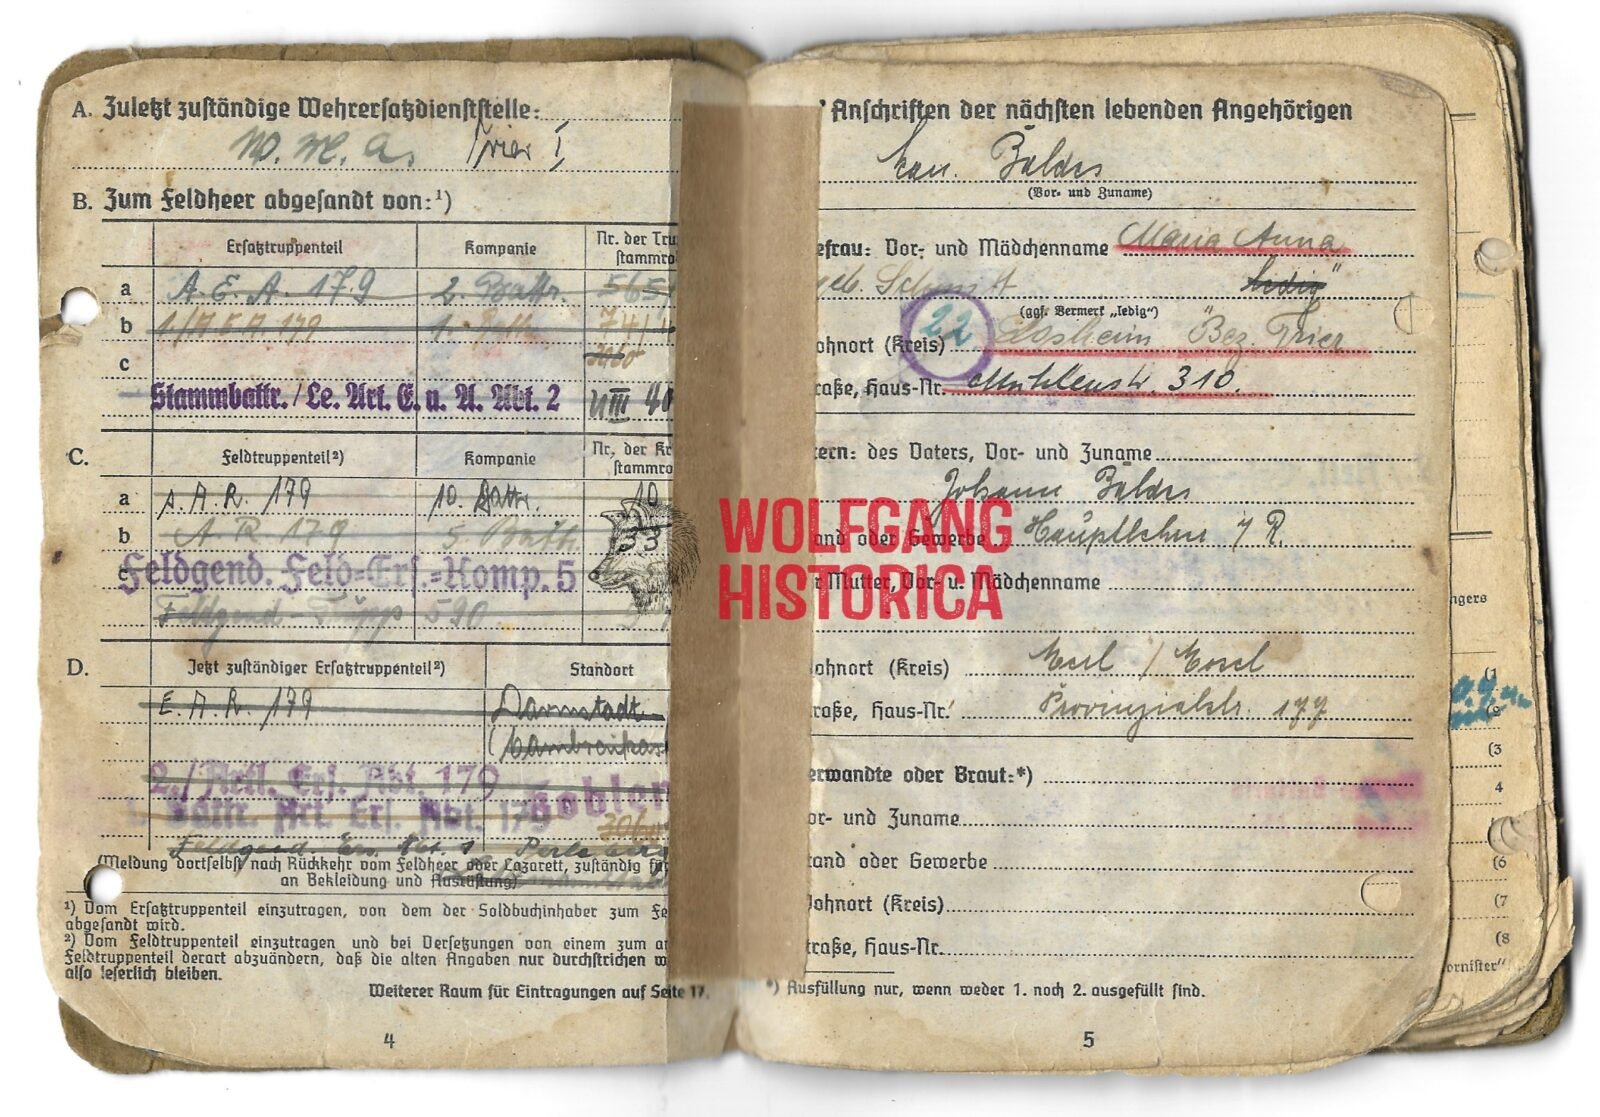 A. Zuletzt zuständige Wehrersatzdienststelle:
W. M. A. Trier I
B. Zum Feldheer abgesandt von:¹)
Ersatztruppenteil Kompanie Nr. der Tru
stammro
a A. E. A. 179 2. Battr. 565
b 1./A E A 179 1. 74/
c
Stammbattr. / Le. Art. E. u. A. Abt. 2 III 40
C. Feldtruppenteil²) Kompanie Nr. der Kr
stammro
a s. A. R. 179 10. Battr. 10
b A. R. 179 5. Battr. 33
c Feldgend. Feld=Ers.=Komp. 5
Feldgend - Trupp 590
D. Jetzt zuständiger Ersatztruppenteil²) Standort
E. A. R. 179 Darmstadt
2. / Artl. Ers. Abt. 179 Koblen
Battr. Art. Ers. Abt. 179
Feldgend. Ers. Abt. 1 Perleberg
(Meldung dortselbst nach Rückkehr vom Feldheer oder Lazarett, zuständig für
an Bekleidung und Ausrüstung)
¹) Vom Ersatztruppenteil einzutragen, von dem der Soldbuchinhaber zum Fe
abgesandt wird.
²) Vom Feldtruppenteil einzutragen und bei Versetzungen von einem zum a
Feldtruppenteil derart abzuändern, daß die alten Angaben nur durchstrichen w
also leserlich bleiben.
Weiterer Raum für Eintragungen auf Seite 17.
4
Anschriften der nächsten lebenden Angehörigen
Baldes
(Vor- und Zuname)
efrau: Vor- und Mädchenname Maria Anna
geb. Schmidt "ledig"
(ggf. Vermerk „ledig")
22
ohnort (Kreis) Losheim Bez. Trier
raße, Haus-Nr. Mühlenstr. 310.
tern: des Vaters, Vor- und Zuname
Johann Baldes
and oder Gewerbe Hauptlehrer i R.
r Mutter, Vor- u. Mädchenname
ohnort (Kreis) Merl / Mosel
raße, Haus-Nr. Provinzialstr. 177
erwandte oder Braut:*)
or- und Zuname
tand oder Gewerbe
ohnort (Kreis)
traße, Haus-Nr.
*) Ausfüllung nur, wenn weder 1. noch 2. ausgefüllt sind.
5
WOLFGANG
HISTORICA
ngers
(1
(2
(3
4
(6
(7
(8
ornister"